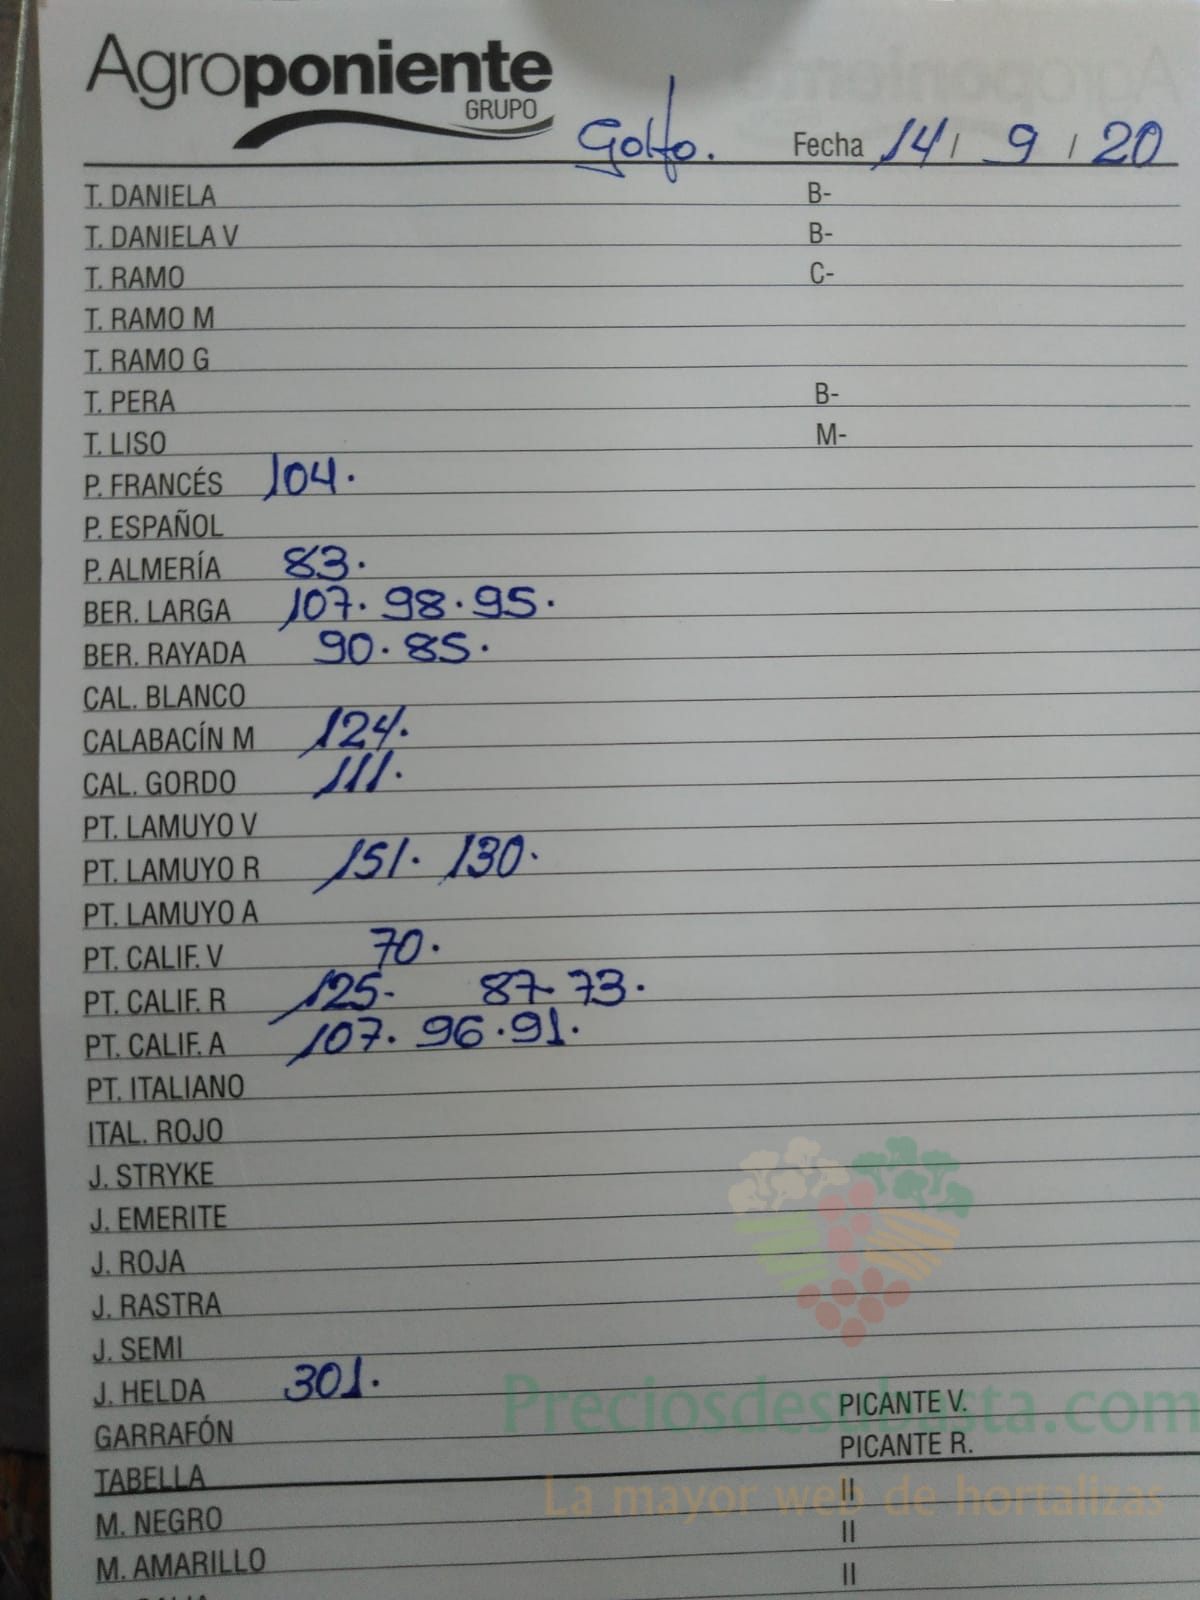 Agroponiente
GRUPO
Golfo. Fecha 14 / 9 / 20
T. DANIELA B-
T. DANIELA V B-
T. RAMO C-
T. RAMO M
T. RAMO G
T. PERA B-
T. LISO M-
P. FRANCÉS 104.
P. ESPAÑOL
P. ALMERÍA 83.
BER. LARGA 107. 98. 95.
BER. RAYADA 90. 85.
CAL. BLANCO
CALABACÍN M 124.
CAL. GORDO 111.
PT. LAMUYO V
PT. LAMUYO R 151. 130.
PT. LAMUYO A
PT. CALIF. V 70.
PT. CALIF. R 125- 87-73.
PT. CALIF. A 107. 96. 91.
PT. ITALIANO
ITAL. ROJO
J. STRYKE
J. EMERITE
J. ROJA
J. RASTRA
J. SEMI
J. HELDA 301.
Preciosdesubasta.com
GARRAFÓN PICANTE V.
TABELLA PICANTE R.
La mayor web de hortalizas
M. NEGRO II
M. AMARILLO II
II